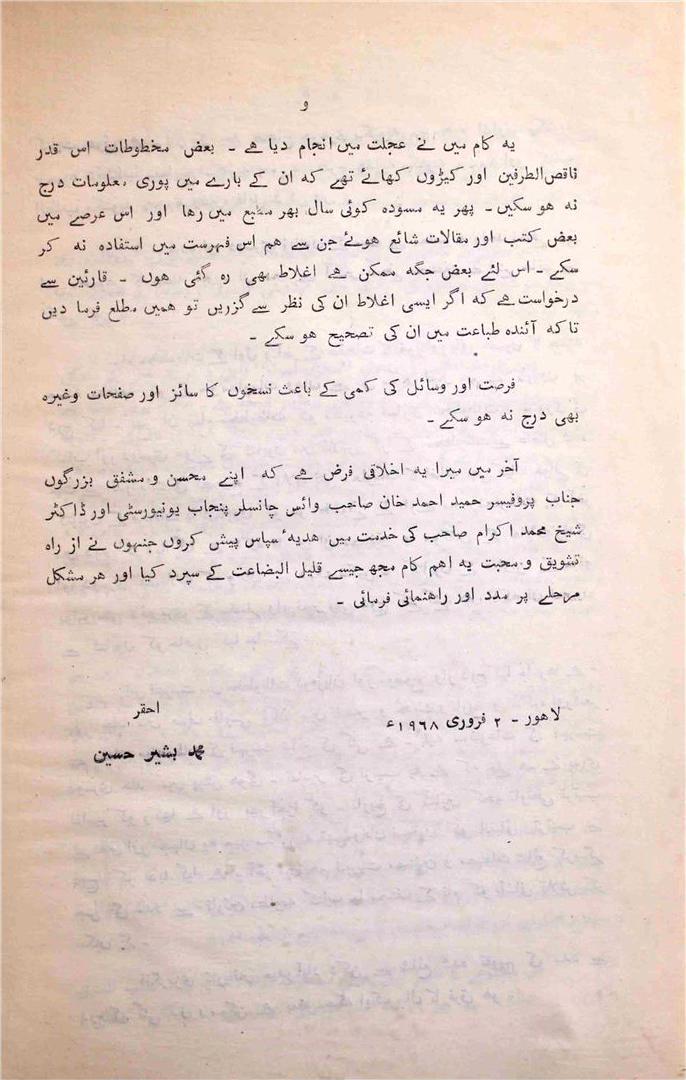 و
یہ کام میں نے عجلت میں انجام دیا ہے ۔ بعض مخطوطات اس قدر
ناقص الطرفین اور کیڑوں کھائے تھے کہ ان کے بارے میں پوری معلومات درج
نہ ہو سکیں ۔ پھر یہ مسودہ کوئی سال بھر مطبع میں رہا اور اس عرصے میں
بعض کتب اور مقالات شائع ہوئے جن سے ہم اس فہرست میں استفادہ نہ کر
سکے ۔ اس لئے بعض جگہ ممکن ہے اغلاط بھی رہ گئی ہوں ۔ قارئین سے
درخواست ہے کہ اگر ایسی اغلاط ان کی نظر سے گزریں تو ہمیں مطلع فرما دیں
تا کہ آئندہ طباعت میں ان کی تصحیح ہو سکے ۔
فرصت اور وسائل کی کمی کے باعث نسخوں کا سائز اور صفحات وغیرہ
بھی درج نہ ہو سکے ۔
آخر میں میرا یہ اخلاقی فرض ہے کہ اپنے محسن و مشفق بزرگوں
جناب پروفیسر حمید احمد خان صاحب وائس چانسلر پنجاب یونیورسٹی اور ڈاکٹر
شیخ محمد اکرام صاحب کی خدمت میں ہدیۂ سپاس پیش کروں جنہوں نے از راہ
تشویق و محبت یہ اہم کام مجھ جیسے قلیل البضاعت کے سپرد کیا اور ہر مشکل
مرحلے پر مدد اور راہنمائی فرمائی ۔
لاہور ۔ ۲ فروری ۱۹۶۸ء
احقر
محمد بشیر حسین